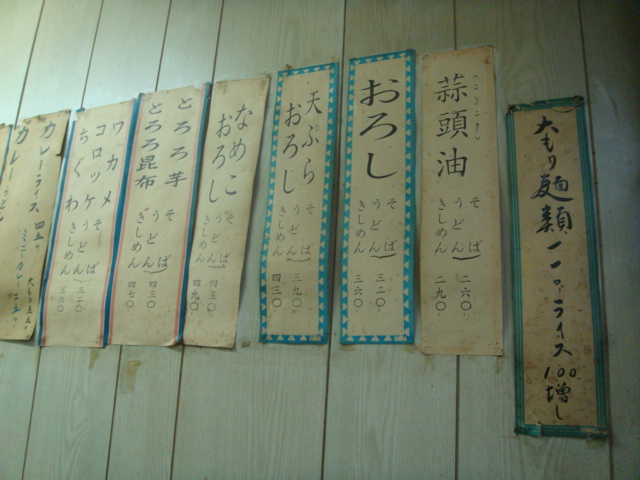 大もり麺類一一〇ライス100増し
蒜頭油
そば
うどん 二六〇
きしめん 二九〇
おろし
そば
うどん 三二〇
きしめん 三六〇
天ぷら
おろし
そば
うどん 三九〇
きしめん 四三〇
なめこ
おろし
そば
うどん 四五〇
きしめん 四九〇
とろろ芋
とろろ昆布
そば
うどん 四三〇
きしめん 四七〇
ワカメ
コロッケ
ちくわ
そば
うどん 三二〇
きしめん 三六〇
カレーライス 四五〇
大もり五五〇
カレーうどん